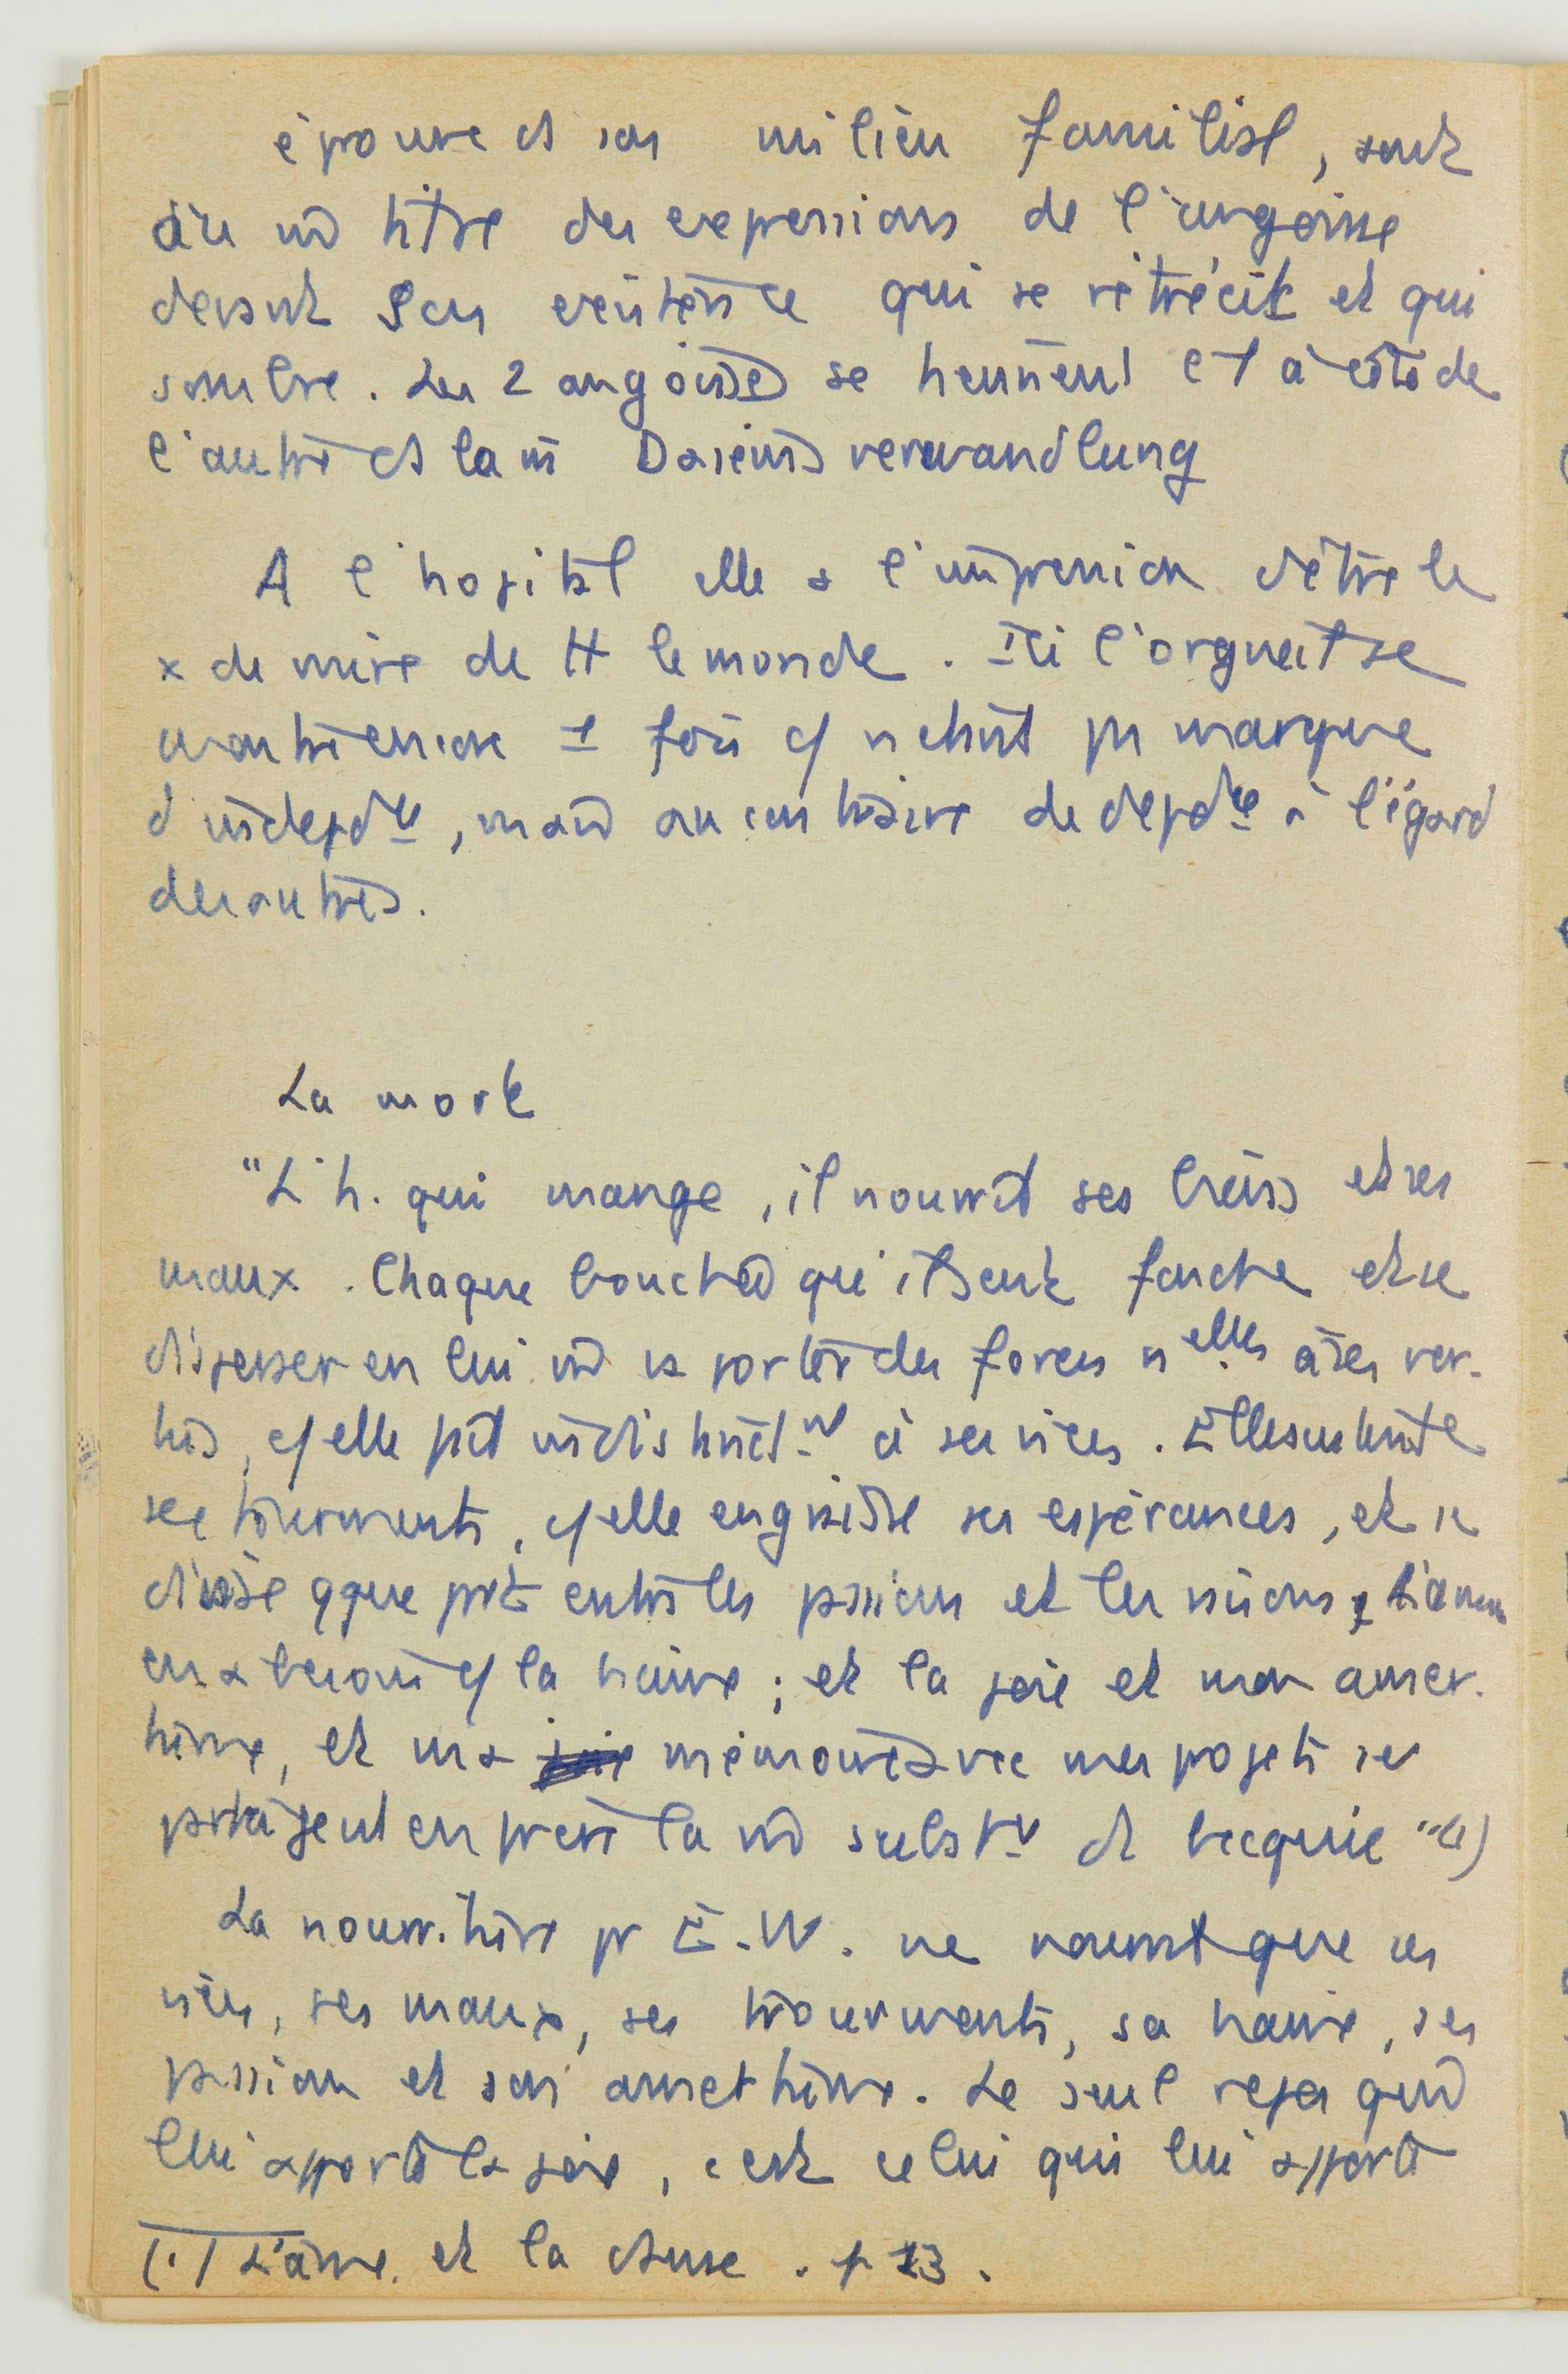 éprouve ds son milieu familial, sont
au m̄ titre des expressions de l'angoisse
devant son existence qui se rétrécit et qui
sombre. Les 2 angoisses se tiennent l'1 à côté de
l'autre ds la m̄ Daseinsverwandlung
A l'hopital elle a l'impression d'être le
x de mire de tt le monde. Ici l'orgueil se
montre encore 1 fois c/ n'etant pas marque
d'indepdce, mais au contraire de depdce à l'égard
des autres.
La mort
"L'h. qui mange, il nourrit ses biens et ses
maux. Chaque bouchée qu'il sent fondre et se
disperser en lui m̄ va porter des forces nelles à ses ver-
tus, c/ elle fait indistinctnt à ses vices. Elle sustente
ses tourments, c/ elle engraisse ses espérances, et se
divise qque part entre les passions et les raisons. L'amour
en a besoin c/ la haine ; et la joie et mon amer-
tume, et ma mémoire avec mes projets se
partagent en frère la m̄ substce de becquée" (1)
La nourriture pr E.W. ne nourrit que ses
vices, ses maux, ses tourments, sa haine, ses
passions et son amertume. Le seul repas qui
lui apporte la joie, c'est celui qui lui apporte
(1) L'âme et la danse. p 13.